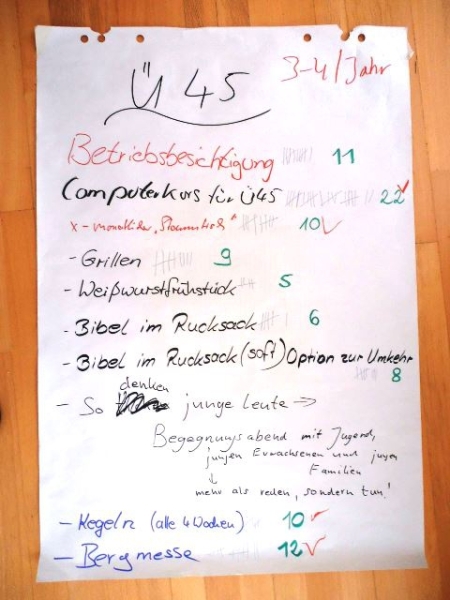 Ü 45
3-4/Jahr
Betriebsbesichtigung 11
Computerkurs für Ü45 22
x-monatlicher "Stammtisch" 10
- Grillen 9
- Weißwurstfrühstück 5
- Bibel im Rucksack 6
- Bibel im Rucksack (soft) Option zur Umkehr
8
- So denken junge Leute →
Begegnungsabend mit Jugend,
jungen Erwachsenen und jungen
Familien
↓
mehr als reden, sondern tun!
- Kegeln (alle 4 Wochen) 10
- Bergmesse 12